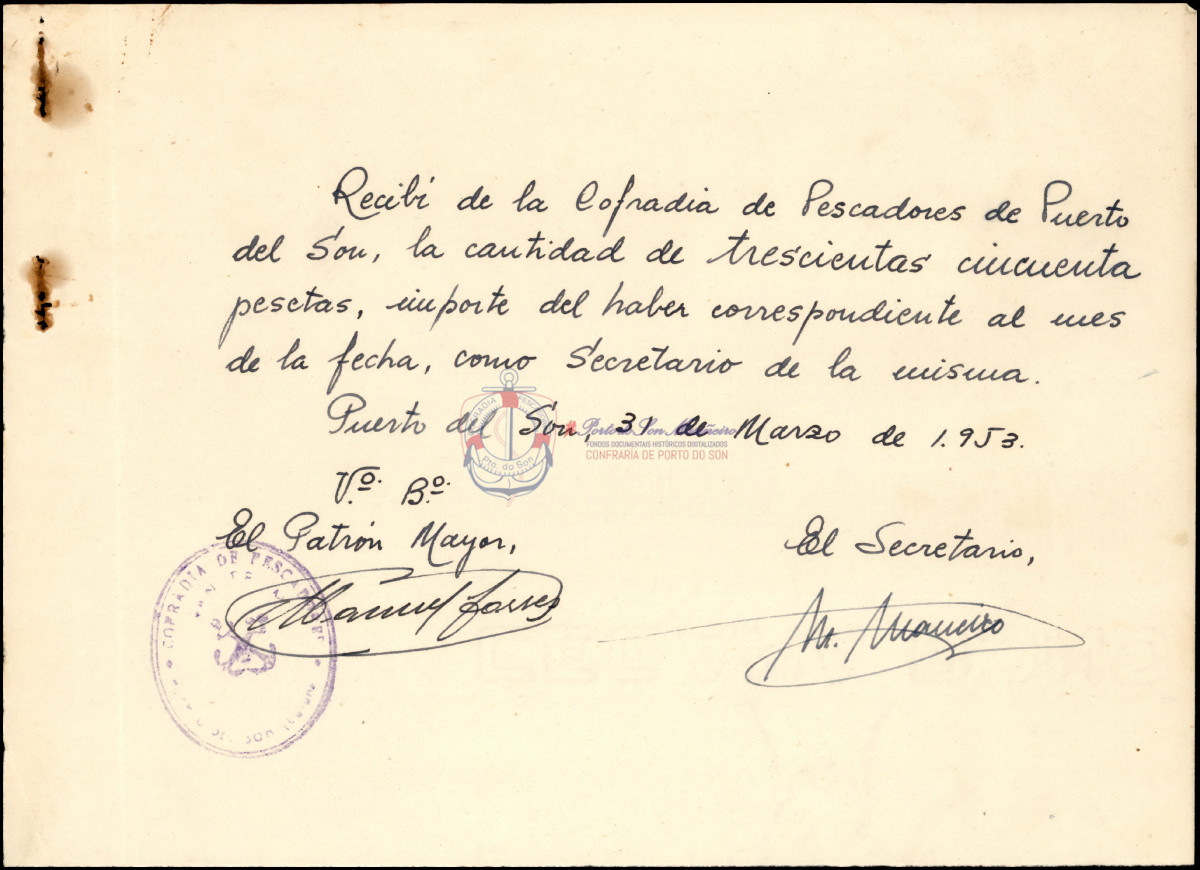 Recibí de la Cofradia de Pescadores de Puerto
del Son, la cantidad de trescientas cincuenta
pesetas, importe del haber correspondiente al mes
de la fecha, como Secretario de la misma.
Puerto del Son, 31 de Marzo de 1.953.
COFRADIA
Pto. do Son
Porto do Son
FONDOS DOCUMENTAIS HISTÓRICOS DIXITALIZADOS
CONFRARÍA DE PORTO DO SON
V.º B.º
El Patrón Mayor,
El Secretario,
COFRADIA DE PESCADORES
SON
Manuel
M. Maneiro